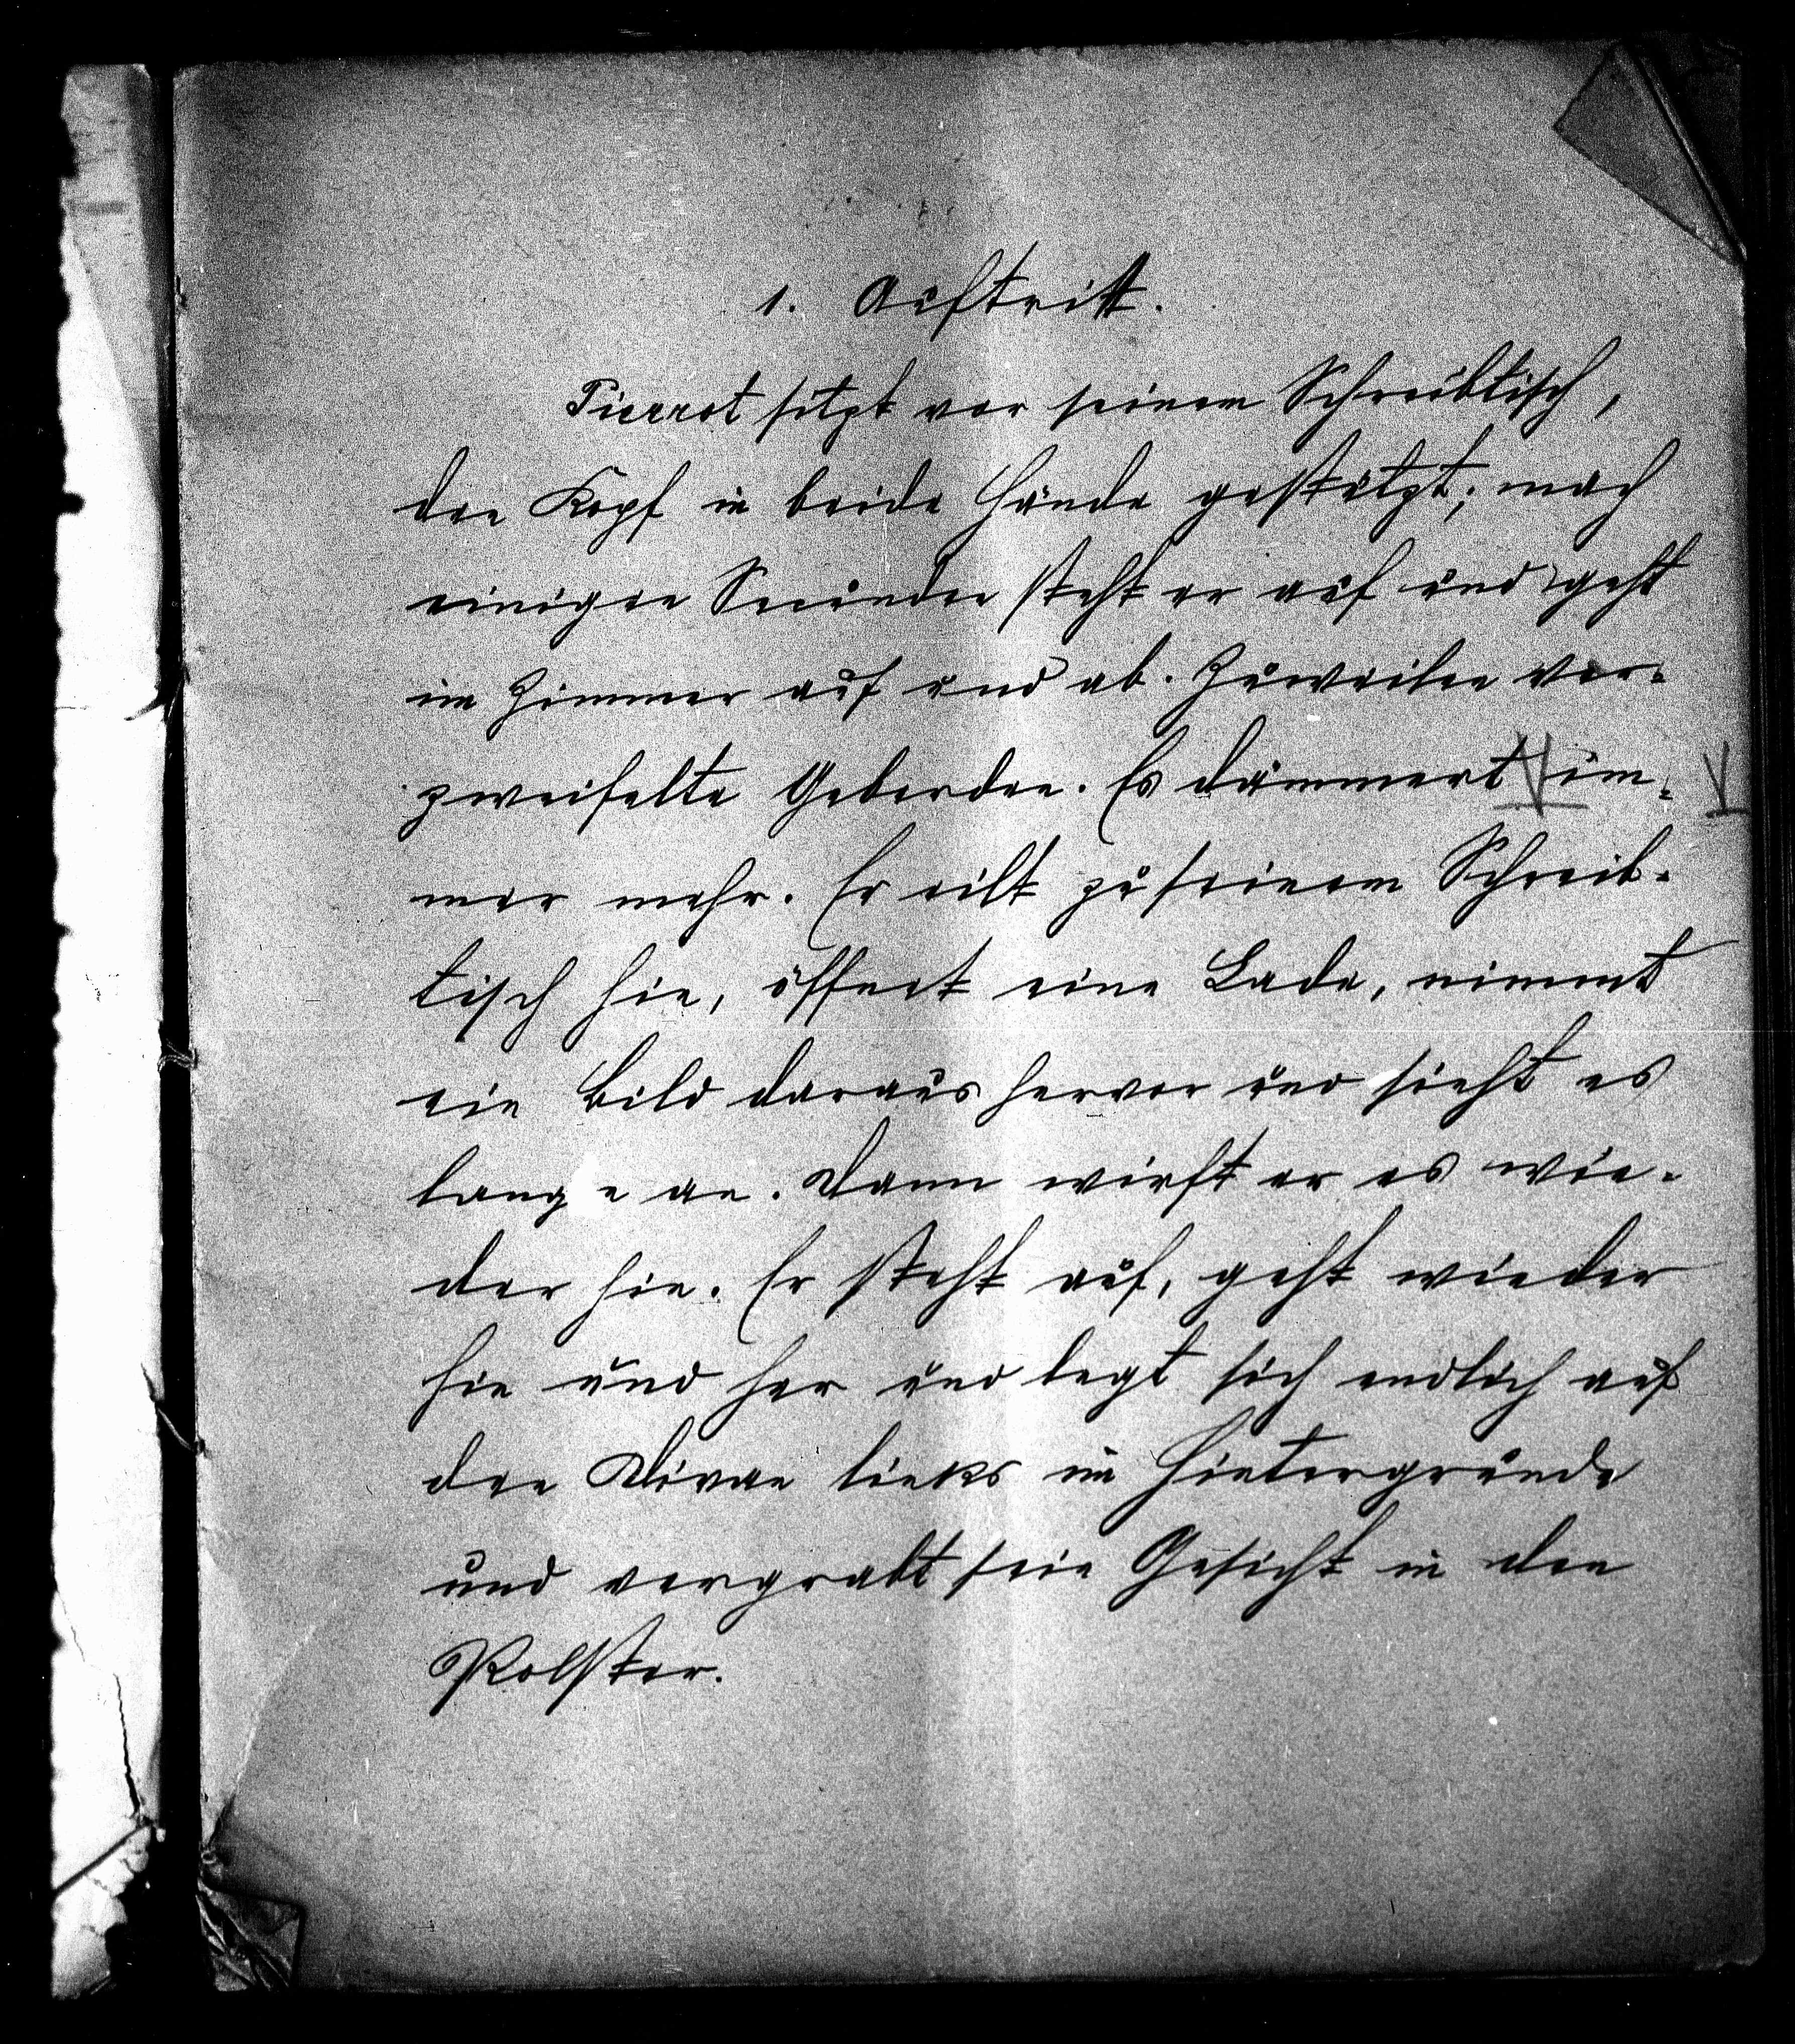 1. Auftritt.
Pierrot sitzt vor seinem Schreibtisch,
den Kopf in beide Hände gestützt; nach
einigen Secunden steht er auf und geht
im Zimmer auf und ab. Zuweilen ver-
zweifelte Geberden. Es dämmert im-
mer mehr. Er eilt zu seinem Schreib-
tisch hin, öffnet eine Lade, nimmt
ein Bild daraus hervor und sieht es
lange an. Dann wirft er es wie-
der hin. Er steht auf, geht wieder
hin und her und legt sich endlich auf
den Divan links im Hintergrunde
und vergrabt sein Gesicht in den
Polster.